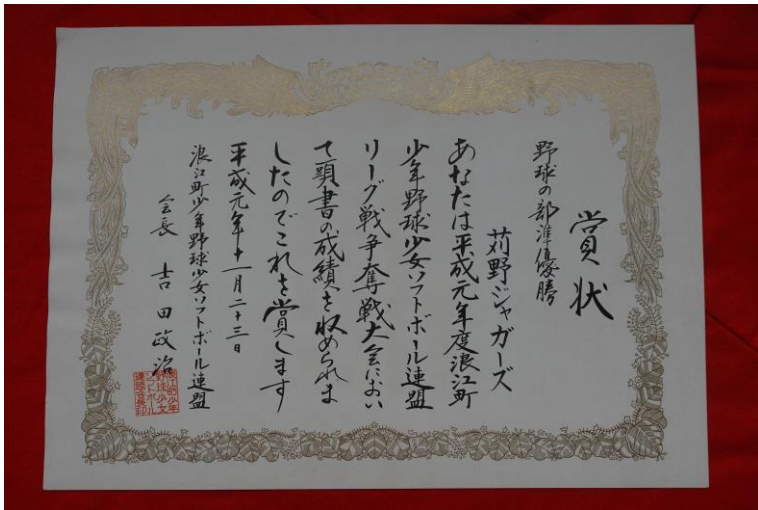 賞状
野球の部準優勝
苅野ジャガーズ
あなたは平成元年度浪江町
少年野球少女ソフトボール連盟
リーグ戦争奪戦大会におい
て頭書の成績を収められま
したのでこれを賞します
平成元年十一月二十三日
浪江町少年野球少女ソフトボール連盟
会長 吉田政治